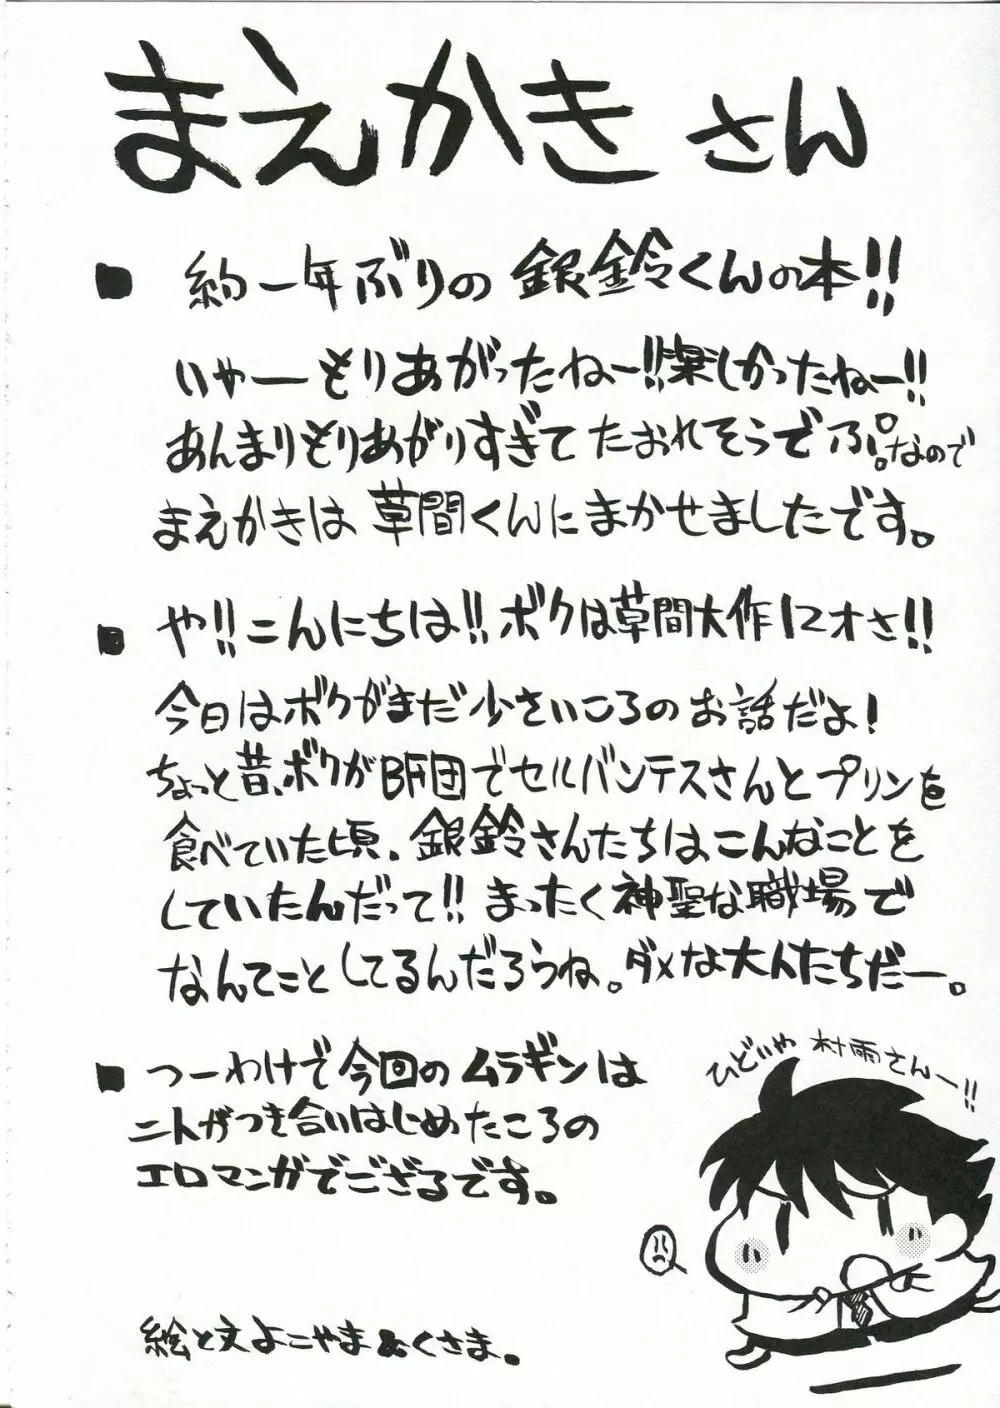 まえかきさん
■ 約一年ぶりの銀鈴くんの本!!
いやーもりあがったねー!!楽しかったねー!!
あんまりもりあがりすぎてたおれそうでぷ。なので
まえかきは草間くんにまかせましたです。
■ や!!こんにちは!!ボクは草間大作12才さ!!
今日はボクがまだ少さいころのお話だよ!
ちょっと昔、ボクがBF団でセルバンテスさんとプリンを
食べていた頃、銀鈴さんたちはこんなことを
していたんだって!!まったく神聖な職場で
なんてことしてるんだろうね。ダメな大人たちだー。
■ つーわけで今回のムラギンは
ニ人がつき合いはじめたころの
エロマンガでござるです。
ひどいや村雨さんー!!
絵と文よこやま&くさま。